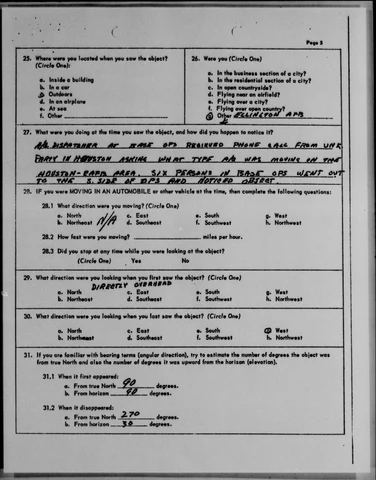 Page 2
25. Where were you located when you saw the object?
(Circle One):
a. Inside a building
b. In a car
c. Outdoors
d. In an airplane
e. At sea
f. Other
26. Were you (Circle One)
a. In the business section of a city?
b. In the residential section of a city?
c. In open countryside?
d. Flying near an airfield?
e. Flying over a city?
f. Flying over open country?
g. Other ELLINGTON AFB
27. What were you doing at the time you saw the object, and how did you happen to notice it?
A/C DISPATCHER AT BASE OPS RECEIVED PHONE CALL FROM UNK
PARTY IN HOUSTON ASKING WHAT TYPE A/C WAS MOVING ON THE
HOUSTON- AREA. SIX PERSONS IN BASE OPS WENT OUT
TO THE S. SIDE OF OPS AND NOTICED OBJECT.
28. IF you were MOVING IN AN AUTOMOBILE or other vehicle at the time, then complete the following questions:
28.1 What direction were you moving? (Circle One)
a. North c. East e. South g. West
b. Northeast N/A d. Southeast f. Southwest h. Northwest
28.2 How fast were you moving? miles per hour.
28.3 Did you stop at any time while you were looking at the object?
(Circle One) Yes No
29. What direction were you looking when you first saw the object? (Circle One)
DIRECTLY OVERHEAD
a. North c. East e. South g. West
b. Northeast d. Southeast f. Southwest h. Northwest
30. What direction were you looking when you last saw the object? (Circle One)
a. North c. East e. South g. West
b. Northeast d. Southeast f. Southwest h. Northwest
31. If you are familiar with bearing terms (angular direction), try to estimate the number of degrees the object was
from true North and also the number of degrees it was upward from the horizon (elevation).
31.1 When it first appeared:
a. From true North 90 degrees.
b. From horizon 90 degrees.
31.2 When it disappeared:
a. From true North 270 degrees.
b. From horizon 30 degrees.